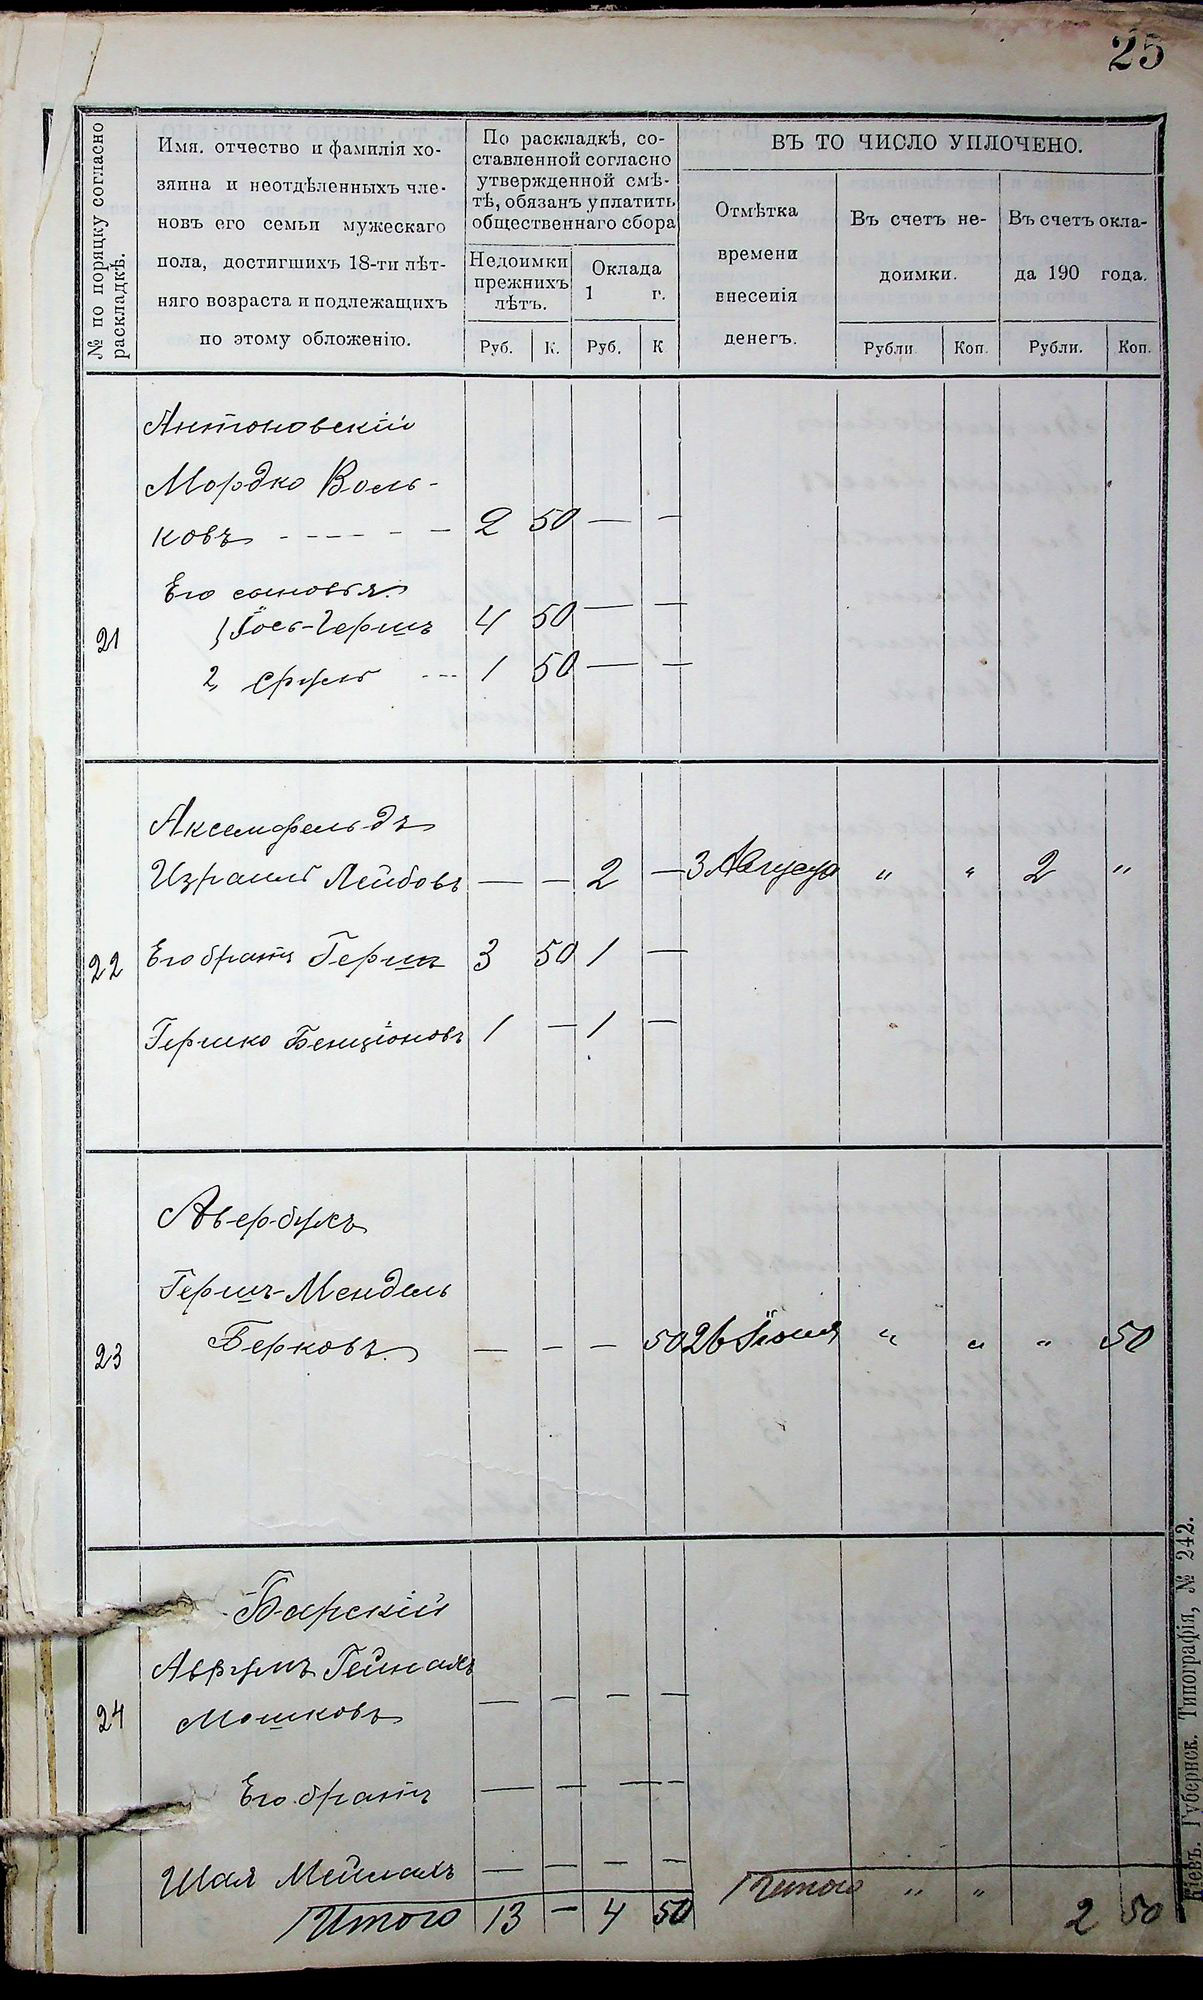 25
№ по порядку согласно раскладкѣ.
Имя, отчество и фамилія хо-
зяина и неотдѣленныхъ чле-
новъ его семьи мужескаго
пола, достигшихъ 18-ти лѣт-
няго возраста и подлежащихъ
по этому обложенію.
По раскладкѣ, со-
ставленной согласно
утвержденной смѣ-
тѣ, обязанъ уплатить
общественнаго сбора
Недоимки прежнихъ лѣтъ.
Оклада 1 г.
Руб. К. Руб. К
ВЪ ТО ЧИСЛО УПЛОЧЕНО.
Отмѣтка
времени
внесенія
денегъ.
Въ счетъ не-
доимки.
Въ счетъ окла-
да 190 года.
Рубли Коп. Рубли. Коп.
Антоновскій
Мордко Воль-
ковъ - - - - - - 2 50 — —
Его сыновья
21 1, Іось-Герш 4 50 — —
2, Сруль --- 1 50 — —
Аксельфельдъ
Израиль Лейбовъ — — 2 — 3 Августа " " 2 "
22 Его братъ Герш 3 50 1 —
Гершко Бенціоновъ 1 — 1 —
Авербухъ
Гершъ-Мендель
23 Берковъ — — — 50 26 Іюня " " " 50
Барскій
Аврумъ Гейнахъ
24 Мошковъ — — — —
Его братъ — — — —
Шая Мейлахъ — — — —
Итого 13 — 4 50 Итого " " 2 50
Кіевъ. Губернск. Типографія, № 242.